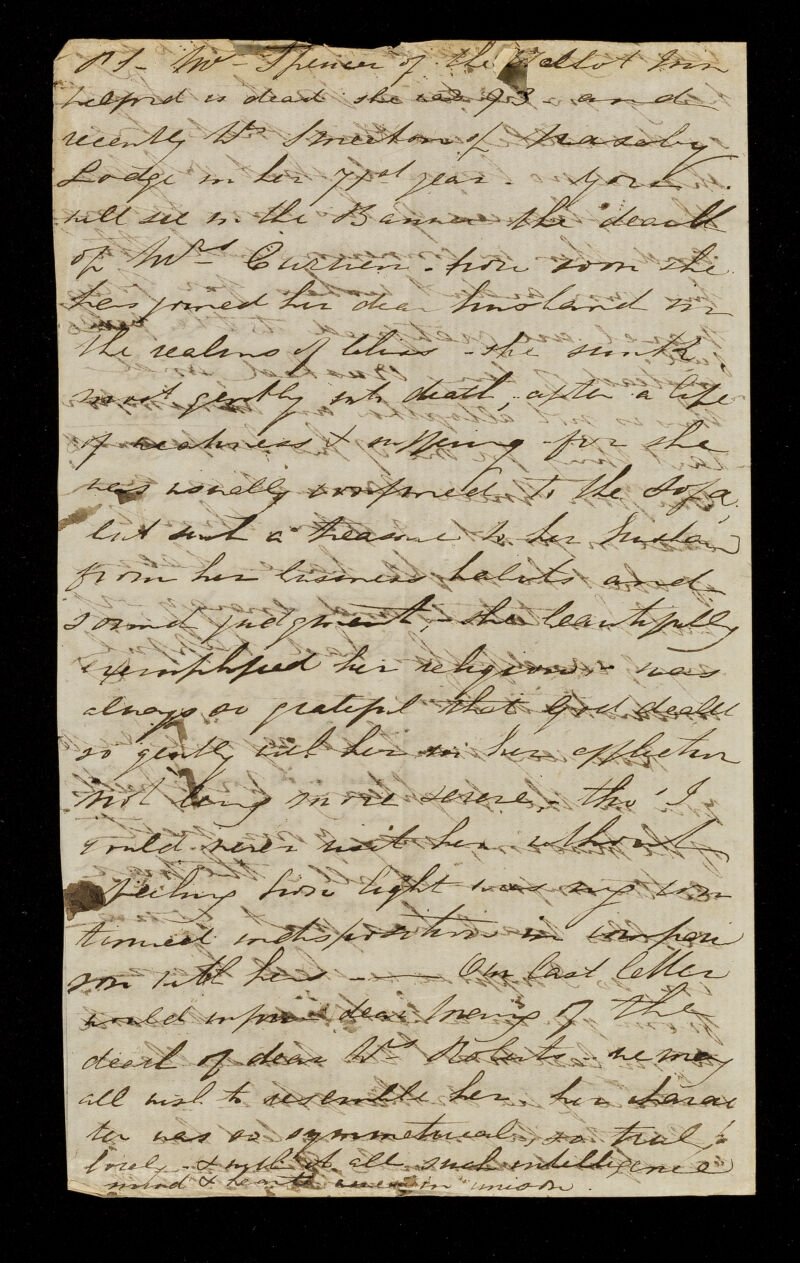 P.S. Mrs Spencer of the Talbot Inn
helped is dead she was 93 - and
recently Mrs Smeeton of Naseby
Lodge in her 71st year - You
will see in the Banner the death
of Mrs Curwen - how soon she
has joined her dear husband in
the realms of bliss - she sunk
most gently into death, after a life
of weakness & suffering - for she
was usually confined to the sofa,
but such a treasure to her husband
from her business habits and
sound judgment, - she beautifully
exemplified her religion - was
always so grateful that God dealt
so gently with her in her affliction
not being more severe, - tho' I
could never visit her without
feeling how light was my con
tinued indisposition in compari
son with hers - Our last letter
would inform dear of the
death of dear Mrs Roberts - we may
all wish to resemble her, her charac
ter was so symmetrical, so truly
lovely - & with it all such intelligence
mind & heart were in unison.